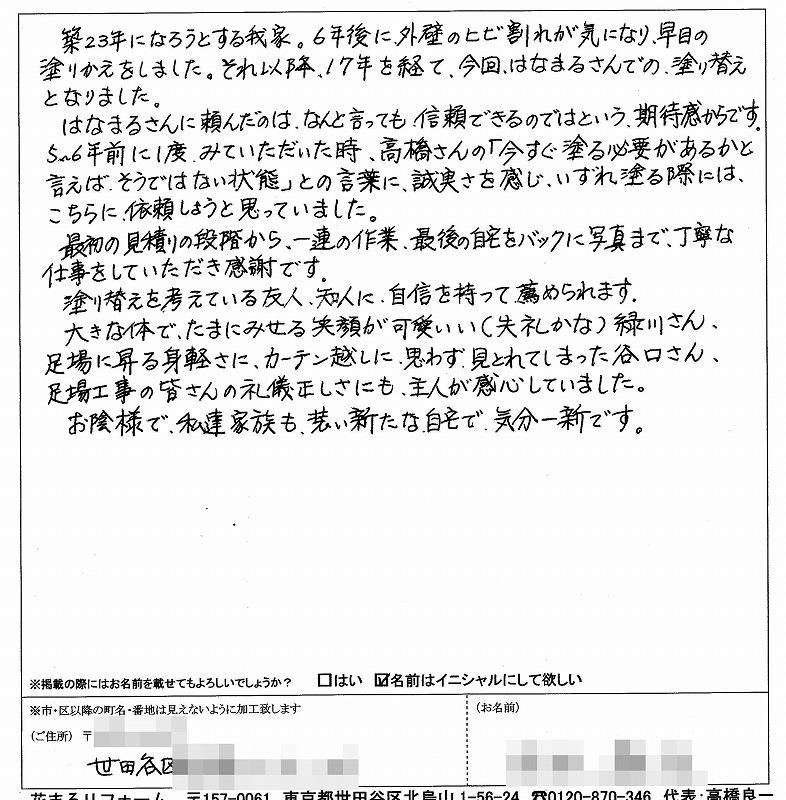 築23年になろうとする我家。6年後に、外壁のヒビ割れが気になり、早目の
塗りかえをしました。それ以降、17年を経て、今回、はなまるさんでの、塗り替え
となりました。
はなまるさんに頼んだのは、なんと言っても、信頼できるのではという、期待感からです。
5~6年前に1度、みていただいた時、高橋さんの「今すぐ塗る必要があるかと
言えば、そうではない状態」との言葉に、誠実さを感じ、いずれ塗る際には、
こちらに、依頼しようと思っていました。
最初の見積りの段階から、一連の作業、最後の自宅をバックに写真まで、丁寧な
仕事をしていただき感謝です。
塗り替えを考えている友人、知人に、自信を持って薦められます。
大きな体で、たまにみせる笑顔が可愛いい(失礼かな)緑川さん、
足場に昇る身軽さに、カーテン越しに、思わず、見とれてしまった谷口さん、
足場工事の皆さんの礼儀正しさにも、主人が感心していました。
お陰様で、私達家族も、装い新たな、自宅で、気分一新です。
※掲載の際にはお名前を載せてもよろしいでしょうか? □はい ☑名前はイニシャルにして欲しい
※市・区以降の町名・番地は見えないように加工致します (お名前)
(ご住所) 〒
世田谷区
花まるリフォーム 〒157-0061 東京都世田谷区北烏山1-56-24 ☎0120-870-346 代表:高橋良一